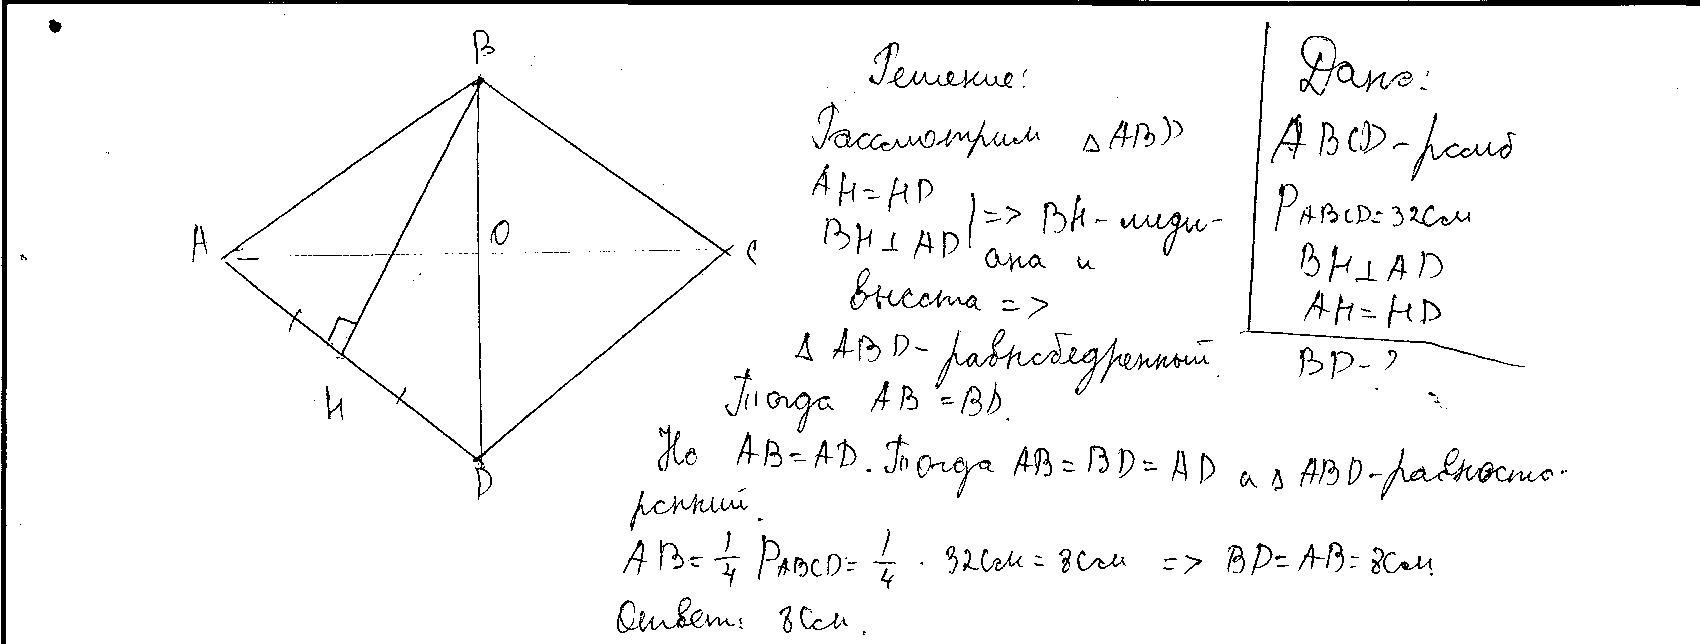 B
A
O
C
H
D
Решение:
Рассмотрим △ABD
AH=HD
BH⊥AD
=> BH-меди-
ана и
высота =>
△ ABD-равнобедренный.
Тогда AB=BD.
Но AB=AD. Тогда AB=BD=AD а △ ABD-равносто-
ронний.
AB=1/4 PABCD=1/4 · 32см=8см => BD=AB=8см.
Ответ: 8см.
Дано:
ABCD-ромб
PABCD=32см
BH⊥AD
AH=HD
BD-?